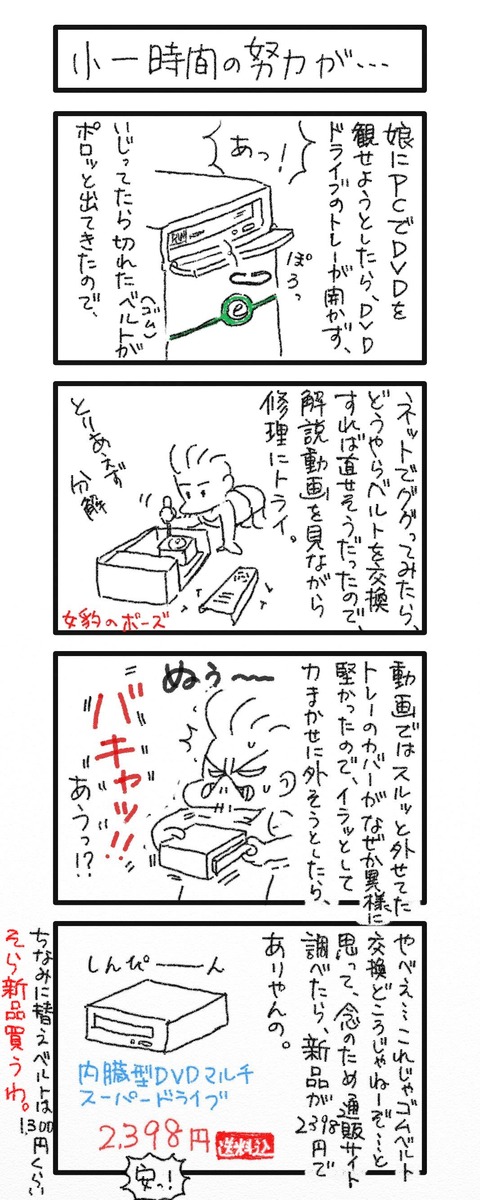 小一時間の努力が…
娘にPCでDVDを
観せようとしたら、DVD
ドライブのトレーが開かず、
あっ!
ぽろっ
いじってたら切れたベルトが
(ゴム)
ポロッと出てきたので、
ネットでググってみたら、
どうやらベルトを交換
すれば直せそうだったので、
解説動画を見ながら
修理にトライ。
とりあえず
分解
女豹のポーズ
動画ではスルッと外せてた
トレーのカバーがなぜか異様に
堅かったので、イラッとして
力まかせに外そうとしたら、
ぬぅ〜〜
バキャッ!!
あうっ!?
やべえ…これじゃゴムベルト
交換どころじゃねーぞ…と
思って、念のため通販サイト
調べたら、新品が2,398円で
ありやんの。
しんぴーーーん
内臓型DVDマルチ
スーパードライブ
2,398円 送料込
安っ!
ちなみに替えベルトは1,300円くらい
そら新品買うわ。